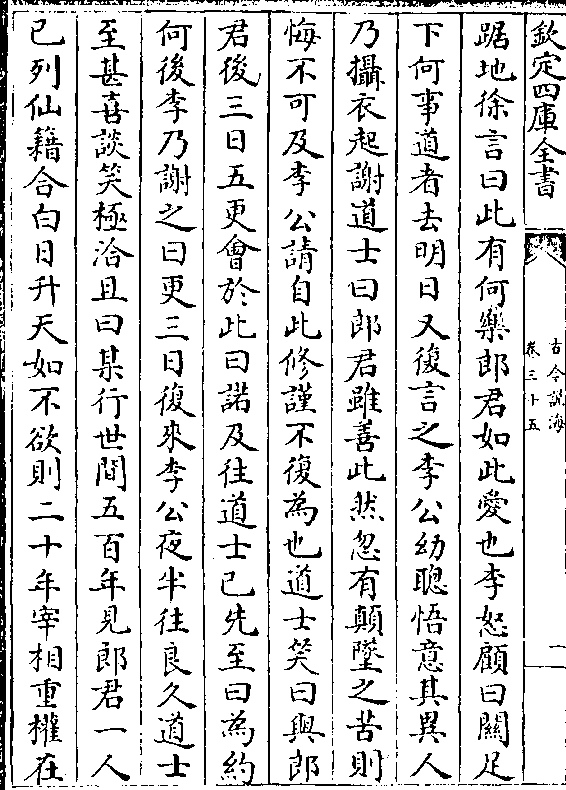 欽定四庫全書
古今說海
卷三十五
一
踞地徐言曰此有何樂郎君如此愛也李怒顧曰關足
下何事道者去明日又復言之李公幼聰悟意其異人
乃攝衣起謝道士曰郎君雖善此然忽有顛墜之苦則
悔不可及李公請自此修謹不復為也道士笑曰與郎
君後三日五更會於此曰諾及往道士已先至曰為約
何後李乃謝之曰更三日復來李公夜半往良久道士
至甚喜談笑極洽且曰某行世間五百年見郎君一人
已列仙籍合白日升天如不欲則二十年宰相重權在